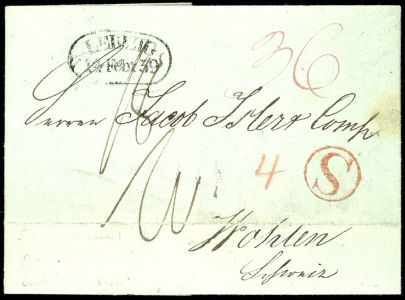 LEIPZIG
13 Febr 39
36
Herren Jacob Isler & Comp
4 S
Wohlen
Schweiz